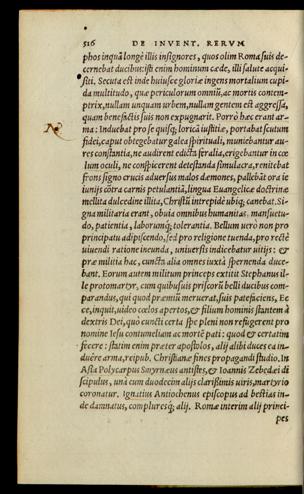 516 DE INVENT. RERVM
phos inquā longè illis insigniores, quos olim Roma suis de-
cernebat ducibus: isti enim hominum cæde, illi salute acqui-
siti. Secuta est inde huiusce gloriæ ingens mortalium cupi-
da multitudo, quæ periculorum omniū, ac mortis contem-
ptrix, nullam unquam urbem, nullam gentem est aggressa,
quam benefactis suis non expugnarit. Porrò hæc erant ar-
ma: Induebat pro se quisq; loricā iustitiæ, portabat scutum
fidei, caput obtegebatur galea spirituali, muniebantur au-
res constantia, ne audirent edicta feralia, erigebantur in cœ
lum oculi, ne conspicerent detestanda simulacra, renitebat
frons signo crucis aduersus malos dæmones, pallebāt ora ie
iunijs cōtra carnis petulantiā, lingua Euangelicæ doctrinæ
mellita dulcedine illita, Christū intrepidè ubiq; canebat. Si-
gna militaria erant, obuia omnibus humanitas. mansuetu-
do, patientia, laborumq́; tolerantia. Bellum uerò non pro
principatu adipiscendo, sed pro religione tuenda, pro rectè
uiuendi ratione ineunda, uniuersis indicebatur uitijs: &
præ militia hac, cuncta alia omnes iuxtà spernenda duce-
bant. Eorum autem militum princeps extitit Stephanus il-
le protomartyr, cum quibusuis priscorū belli ducibus com-
parandus, qui quod præmiū meruerat, suis patefaciens, Ec
ce, inquit, uideo cœlos apertos, & filium hominis stantem à
dextris Dei, quò cuncti certa spe pleni non refugerent pro
nomine Iesu contumeliam ac mortē pati: quod & certatim
fecere: statim enim præter apostolos, alij alibi duces ea in-
duêre arma, reipub. Christianæ fines propagandi studio. In
Asia Polycarpus Smyrnæus antistes, & Ioannis Zebedæi di
scipulus, unà cum duodecim alijs clarißimis uiris, martyrio
coronatur. Ignatius Antiochenus episcopus ad bestias in-
de damnatus, compluresq́; alij. Romæ interim alij princi-
pes